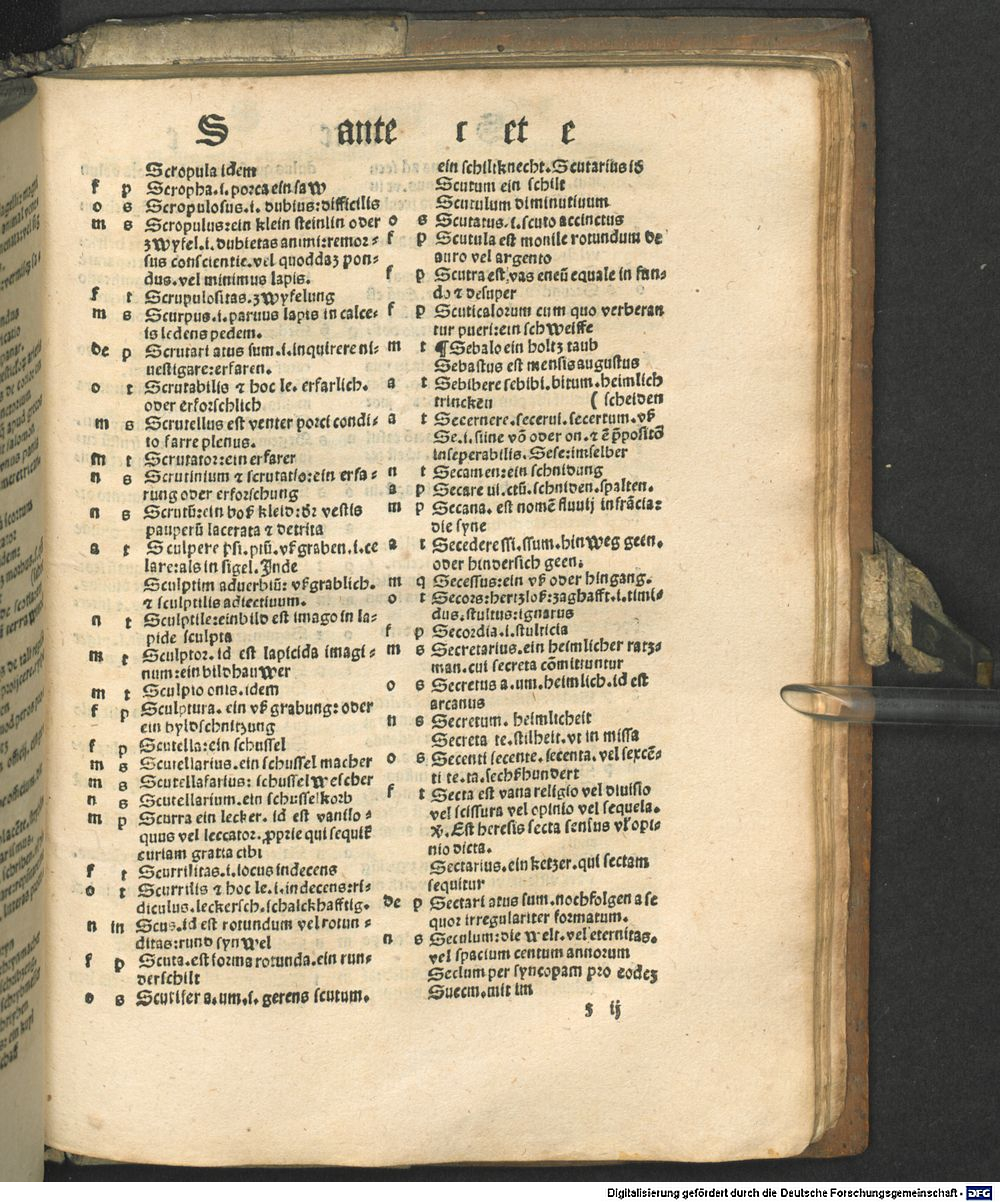 S ante r et e
Scropula idem
f p Scropha.i.porca ein saw
o s Scropulosus.i. dubius:difficilis
m s Scropulus:ein klein steinlin oder
zwyfel.i.dubietas animi:remor-
sus conscientie.vel quoddaz pon-
dus.vel minimus lapis.
f t Scrupulositas.zwyfelung
m s Scurpus.i.paruus lapis in calce-
is ledens pedem.
de p Scrutari atus sum.i.inquirere ni-
uestigare:erfaren.
o t Scrutabilis ⁊ hoc le. erfarlich.
oder erforschlich
m s Scrutellus est venter porci condi-
to farre plenus.
m t Scrutator:ein erfarer
n s Scrutinium ⁊ scrutatio:ein erfa-
rung oder erforschung
n s Scrutū:ein boß kleid:ðr vestis
pauperū lacerata ⁊ detrita
a t Sculpere psi.ptū.vßgraben.i.ce
lare:als in sigel.Inde
Sculptim aduerbiū: vßgrablich.
⁊ sculptilis adiectiuum.
n t Sculptile:einbild est imago in la-
pide sculpta
m t Sculptor.id est lapicida imagi-
num:ein bildhauwer
m t Sculptio onis.idem
f p Sculptura. ein vßgrabung: oder
ein byldschnitzung
f p Scutella:ein schussel
m s Scutellarius.ein schussel macher
m s Scutellafarius: schusselwescher
n s Scutellarium.ein schusselkorb
m p Scurra ein lecker. id est vanilo-
quus vel leccator. ꝓprie qui sequit̄
curiam gratia cibi
f t Scurrilitas.i.locus indecens
o t Scurrilis ⁊ hoc le.i.indecens:ri-
diculus.leckersch.schalckhafftig.
n in Scus.id est rotundum vel rotun-
ditas:rund synwel
f p Scuta.est forma rotunda.ein run-
derschilt
o s Scutifer a.um.i.gerens scutum.
ein schiltknecht.Scutarius id
Scutum ein schilt
Scutulum diminutiuum
o s Scutatus.i.scuto accinctus
f p Scutula est monile rotundum de
auro vel argento
f p Scutra est vas eneū equale in fun-
do ⁊ desuper
f p Scuticalorum cum quo verberan
tur pueri:ein schweiffe
m t ¶ Sebalo ein holtz taub
Sebastus est mensis augustus
a t Sebibere sebibi.bitum.heimlich
trincken ( scheiden
a t Secernere.secerui.secertum.vß
Se.i.sine vō oder on.⁊ ē p̄positō
inseperabilis. Sese:imselber
n t Secamen:ein schnidung
a p Secare ui.ctū.schniden.spalten.
m p Secana. est nomē fluuij in frācia:
die syne
a t Secedere ssi.ssum.hinweg geen.
oder hindersich geen.
m q Secessus:ein vß oder hingang.
o t Secors:hertzloß:zaghafft.i.timi-
dus.stultus:ignarus
f p Secordia.i.stulticia
m s Secretarius.ein heimlicher ratz-
man.cui secreta cōmittuntur
o s Secretus a.um.heimlich.id est
arcanus
n s Secretum. heimlicheit
Secreta te.stilheit.vt in missa
o s Secenti secente.secenta.vel sexcē-
ti te.ta.sechßhundert
f t Secta est vana religio vel diuisio
vel scissura vel opinio vel sequela.
℣. Est heresis secta sensus vł opi-
nio dicta.
Sectarius.ein ketzer.qui sectam
sequitur
de p Sectari atus sum.nochfolgen a se
quor irregulariter formatum.
n s Seculum:die welt.vel eternitas.
vel spacium centum annorum
Seclum per syncopam pro eodez
Suecm.mit im
s ij
Digitalisierung gefördert durch die Deutsche Forschungsgemeinschaft - DFG